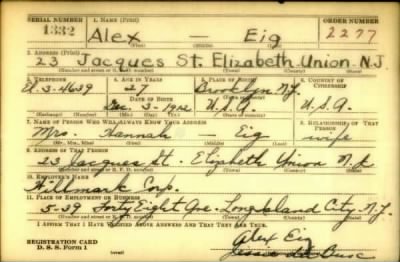 SERIAL NUMBER 1. NAME (Print) ORDER NUMBER
1332 Alex — Eig 2277
(First) (Middle) (Last)
2. ADDRESS (Print)
23 Jacques St. Elizabeth Union N.J.
(Number and street or R. F. D. number) (Town) (County) (State)
3. TELEPHONE 4. AGE IN YEARS 5. PLACE OF BIRTH 6. COUNTRY OF CITIZENSHIP
El. 3-4639 27 Brooklyn
DATE OF BIRTH
Dec. 3 1912 U.S.A. U.S.A.
7. NAME OF PERSON WHO WILL ALWAYS KNOW YOUR ADDRESS 8. RELATIONSHIP OF THAT PERSON
Mrs. Hannah — Eig wife
(Mr., Mrs., Miss) (First) (Middle) (Last)
9. ADDRESS OF THAT PERSON
23 Jacques St. Elizabeth Union N.J.
(Number and street or R. F. D. number) (Town) (County) (State)
10. EMPLOYER'S NAME
Corp.
11. PLACE OF EMPLOYMENT OR BUSINESS
5-39 Forty Eight Ave. Long Island City N.Y.
(Number and street or R. F. D. number) (Town) (County) (State)
I AFFIRM THAT I HAVE VERIFIED ABOVE ANSWERS AND THAT THEY ARE TRUE.
REGISTRATION CARD Alex Eig
D. S. S. Form 1 (over)